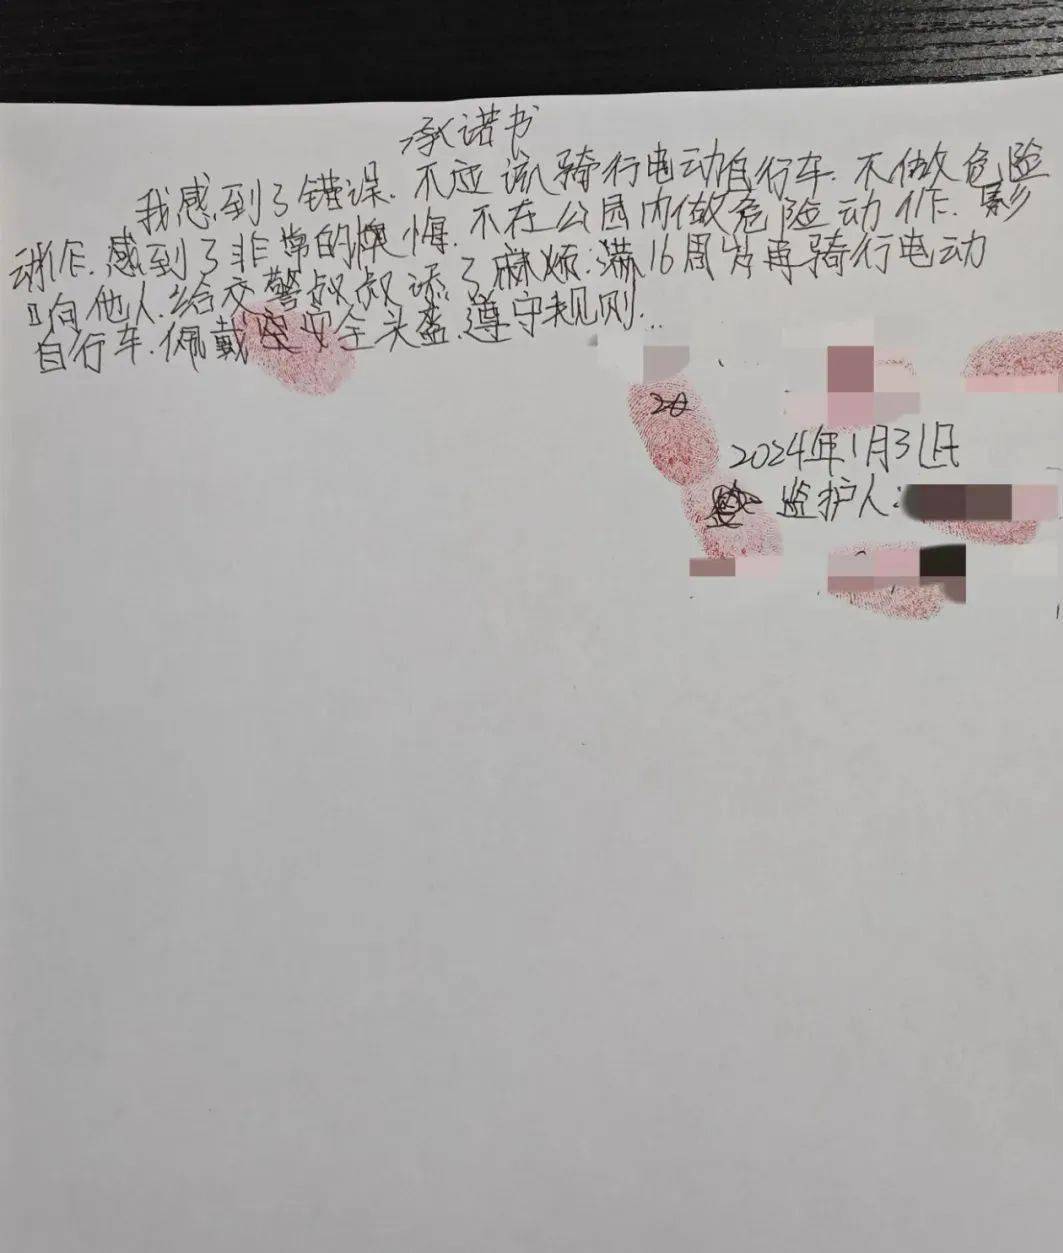 承诺书
我感到了错误.不应该骑行电动自行车.不做危险
动作.感到了非常的懊悔.不在公园内做危险动作.影
向他人.给交警叔叔添了麻烦.满16周岁再骑行电动
自行车.佩戴安全头盔.遵守规则.
20
2024年1月31日
监护人: